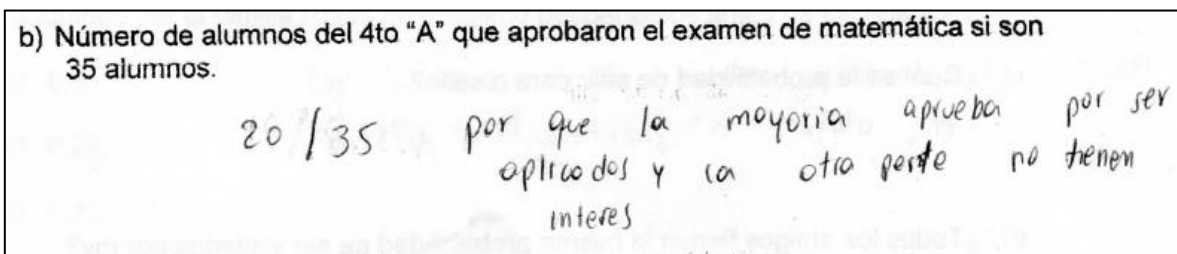 b) Número de alumnos del 4to “A” que aprobaron el examen de matemática si son
35 alumnos.
20/35 por que la mayoria aprueba por ser
aplicados y la otra parte no tienen
interes